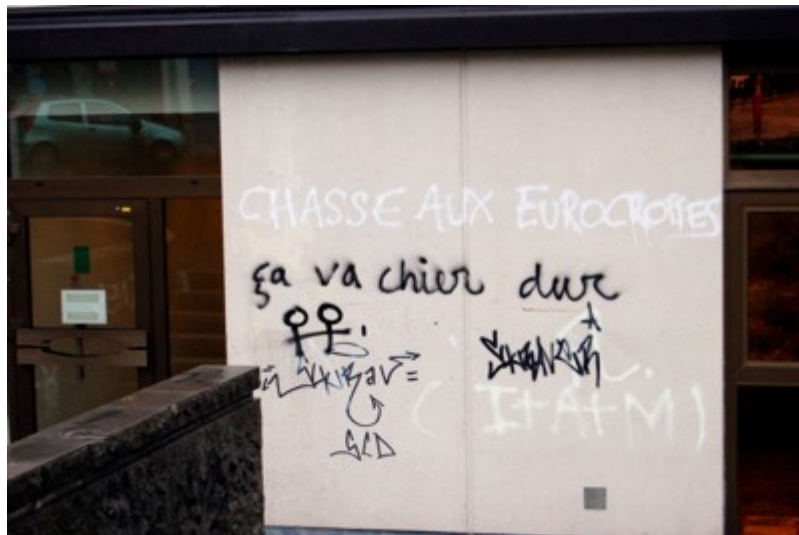 CHASSE AUX EUROCROTTES
ça va chier dur
SCD
( I+A+M )